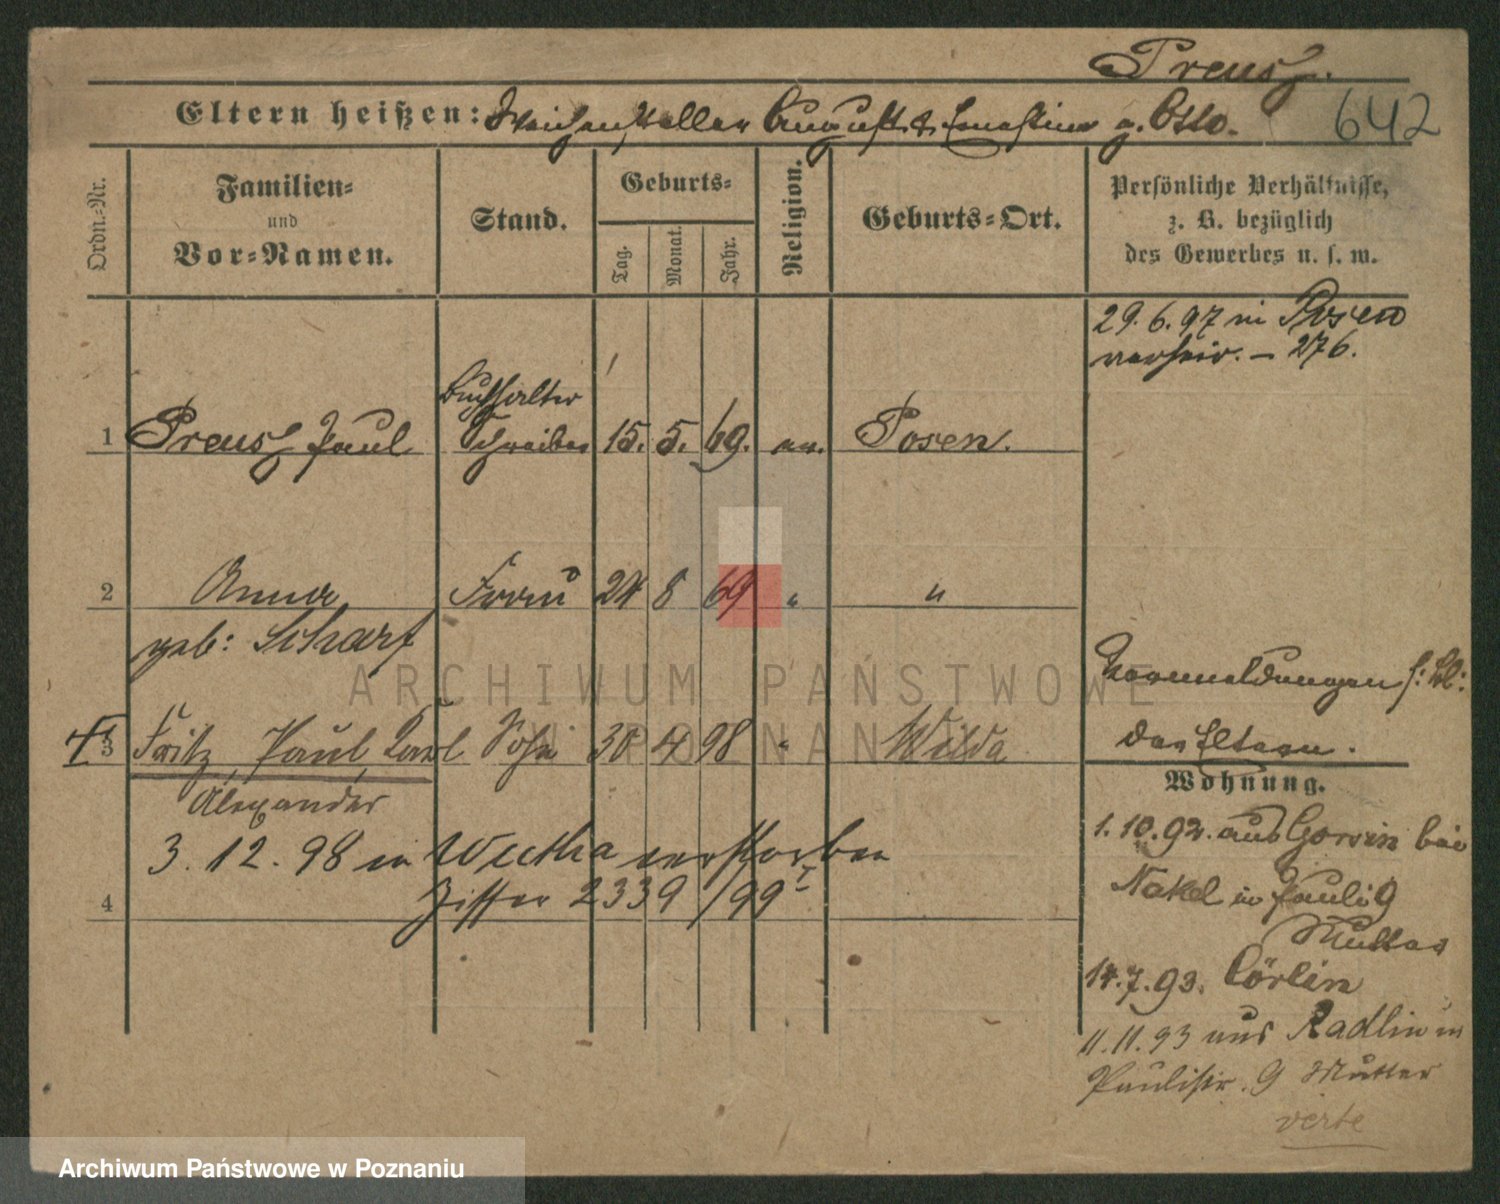 Preusz.
642
Eltern heißen: Weichensteller August & Ernestine g. Otto.
Ordn.-Nr.
Familien-
und
Vor-Namen.
Stand.
Geburts-
Tag.
Monat.
Jahr.
Religion.
Geburts-Ort.
Persönliche Verhältnisse,
z. B. bezüglich
des Gewerbes u. s. w.
29.6.97 in Posen
verheir. – 276.
Buchhalter
1 Preusz Paul Schreiber 15. 5. 69. ev. Posen.
2 Anna Frau 24 8 69 " "
geb: Scharf
Vormeldungen s: bl:
der Eltern.
3 Fritz, Paul, Karl Sohn 30 4 98 " Wilda
Alexander
3.12.98 in Wertha verstorben
4 Ziffer 2339/99 I
Wohnung.
1.10.92. aus Gorsin bei
Nakel in Pauli 9
Mutter
14.7.93. Cörlin
11.11.93 aus Radlin in
Paulistr. 9 Mutter
verte
ARCHIWUM PAŃSTWOWE
W POZNANIU
Archiwum Państwowe w Poznaniu